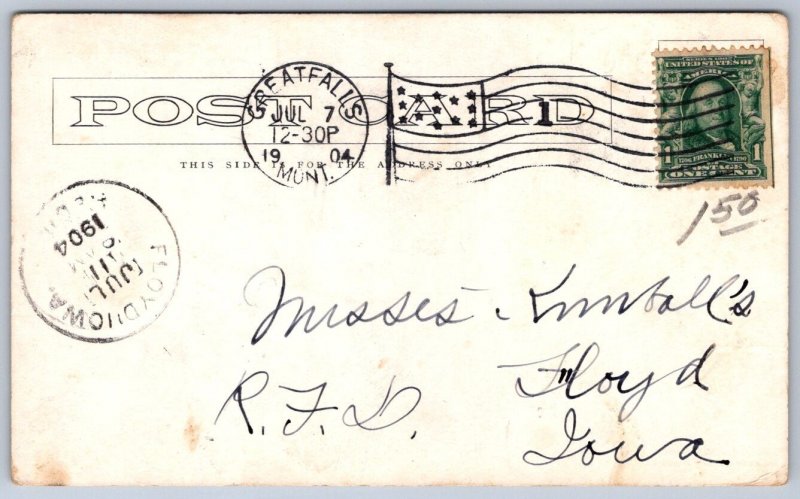 POST CARD
THIS SIDE IS FOR THE ADDRESS ONLY
GREAT FALLS
JUL 7
12-30P
19 04
MONT.
1
UNITED STATES OF
AMERICA
1 FRANKLIN 1
POSTAGE
ONE CENT
150
FLOYD IOWA.
JUL
11
AM
1904
Misses Kimball's
Floyd
R.F.D.
Iowa